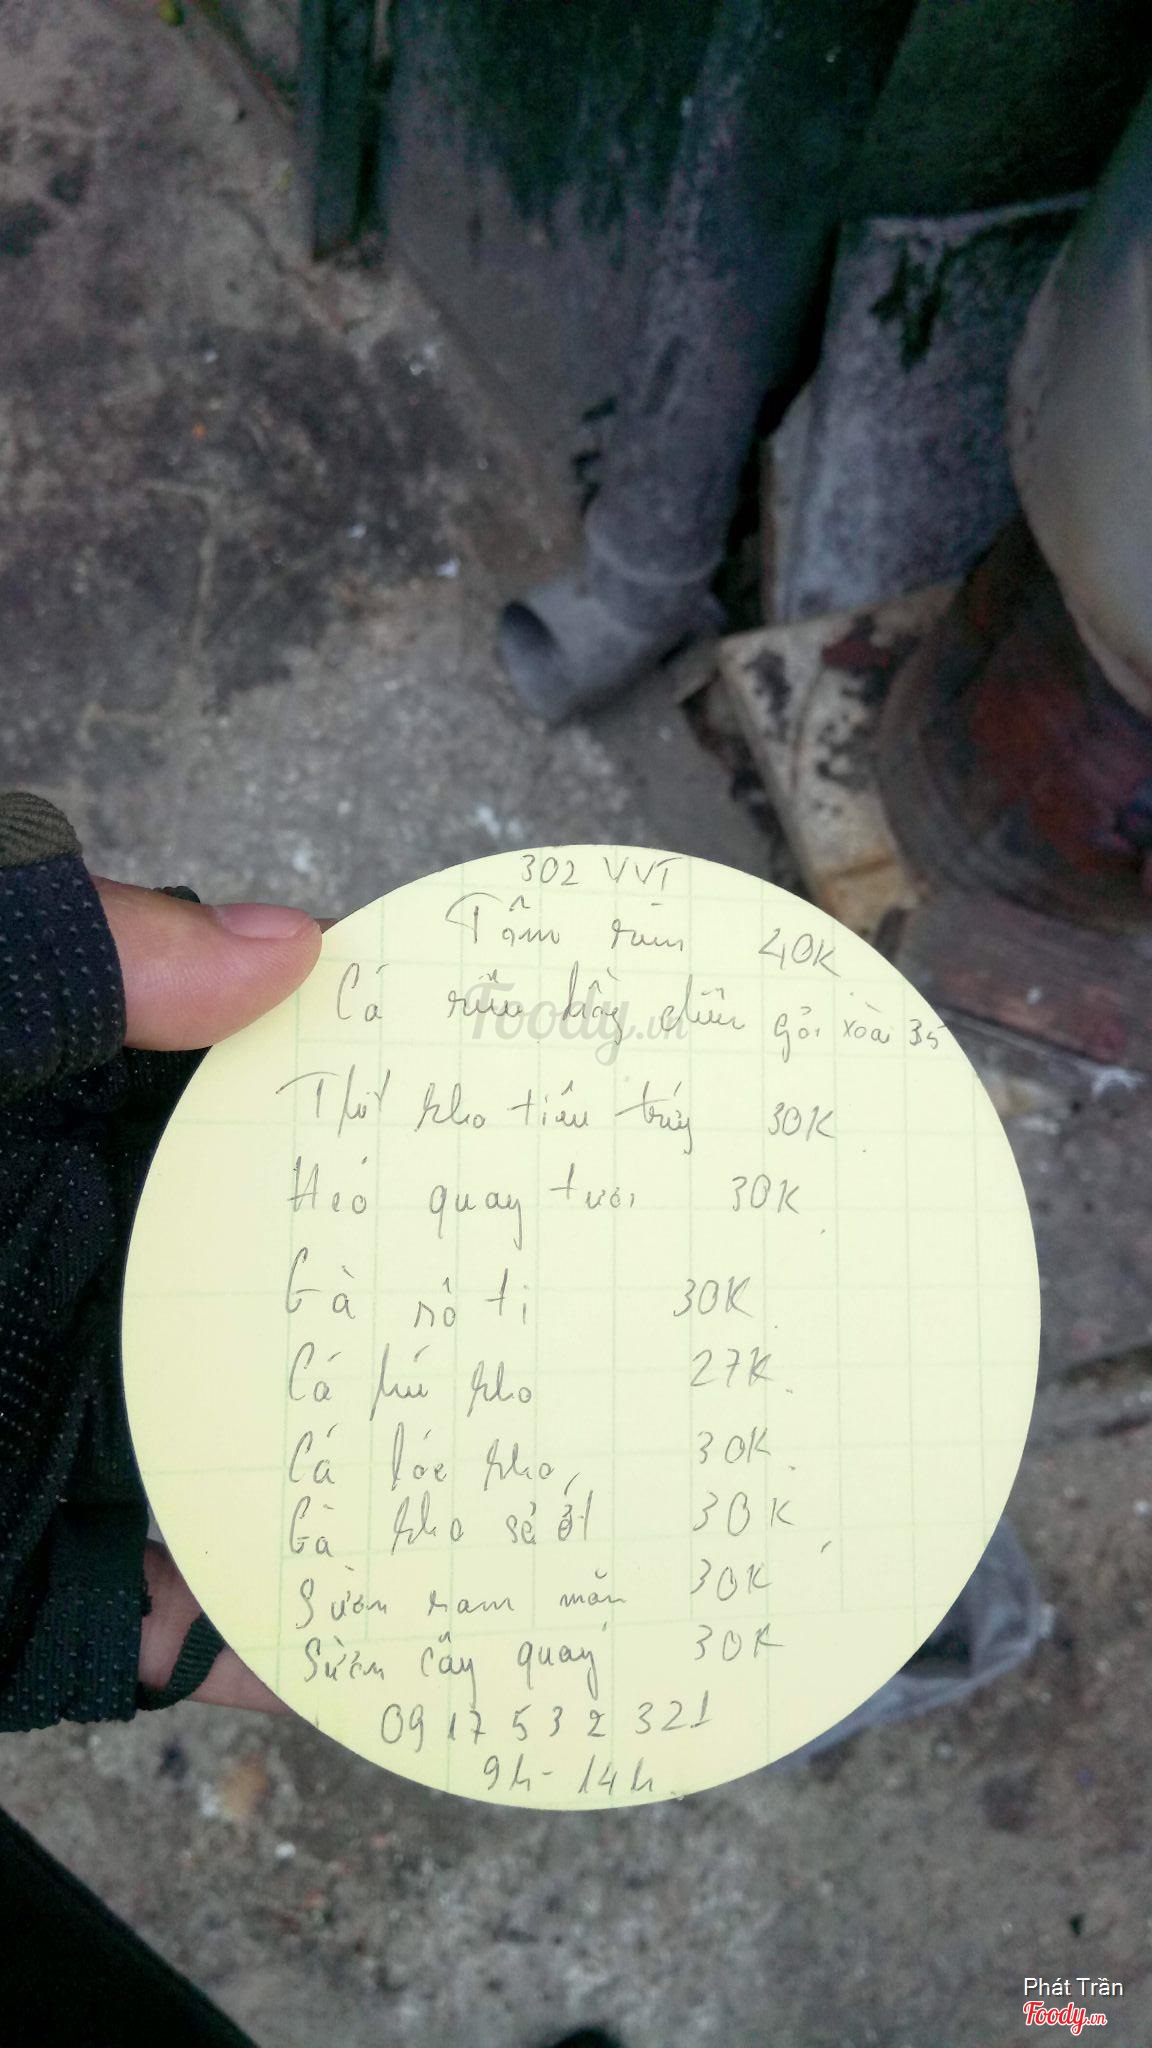 302 VVT
Tôm rim 40K
Cá gỏi xoài 35
Thịt kho tiêu trứng 30K
Heo quay tươi 30K
Gà rô ti 30K
Cá hú kho 27K
Cá lóc kho 30K
Gà kho sả ớt 30K
Sườn ram mặn 30K
Sườn cây quay 30K
0917 532 321
9h - 14h
Foody.vn
Phát Trần
Foody.vn